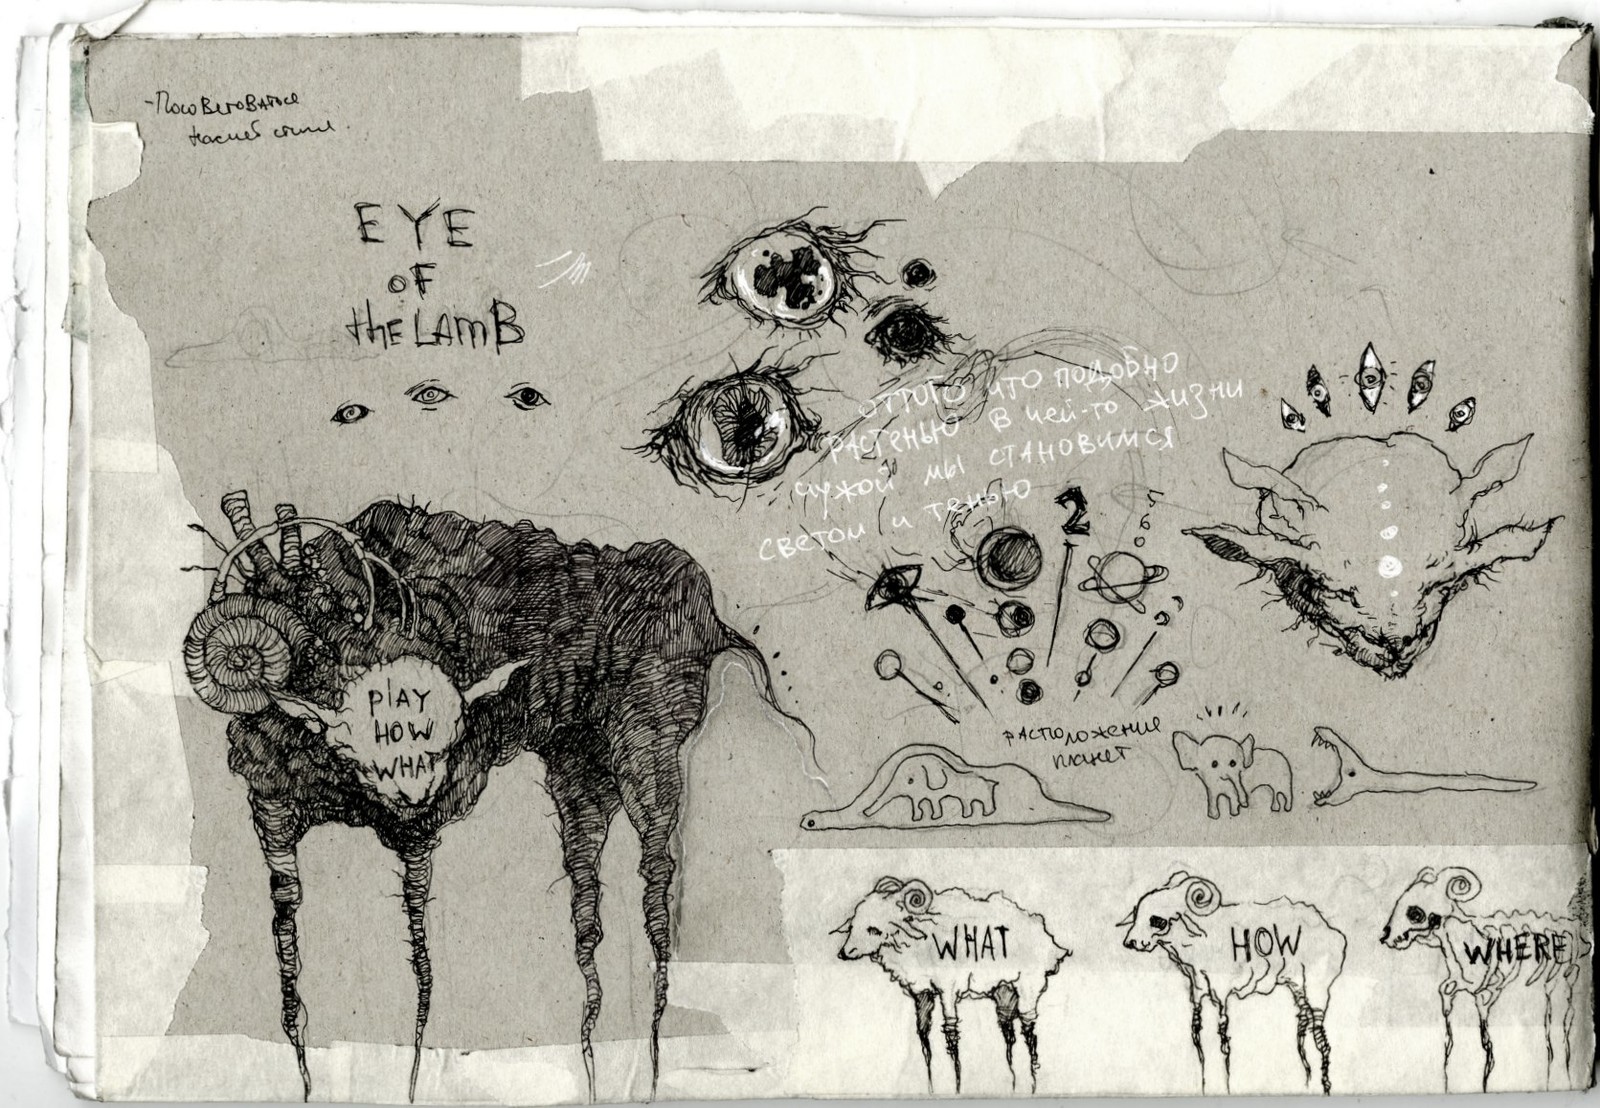 - Посоветоваться
EYE
OF
the LAMB
ОТТОГО ЧТО ПОДОБНО
РАСТЕНЬЮ В чей-то жизни
чужой мы становимся
светом и тенью
2
5
6
PLAY
HOW
WHAT
расположение
планет
WHAT
HOW
WHERE